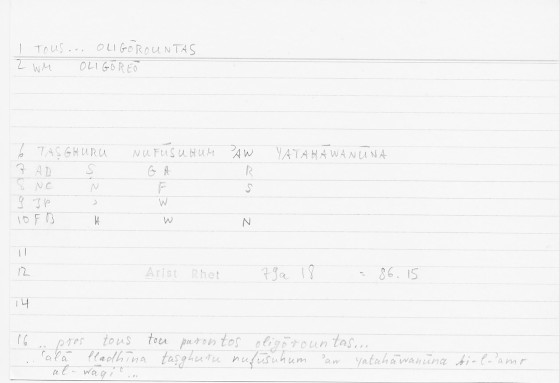 1 TOUS... OLIGŌROUNTAS
2 WM OLIGŌREŌ
6 TAṢGHURU NUFŪSUHUM ʾAW YATAHĀWANŪNA
7 AD Ṣ GH R
8 NC N F S
9 JP ʾ W
10 FD H W N
11
12 Arist Rhet 79a 18 = 86.15
14
16 .. pros tous tou parontos oligōrountas...
. ʿalā lladhīna taṣghuru nufūsuhum ʾaw yatahāwanūna bi-l-ʾamr
al-wāqiʿ...